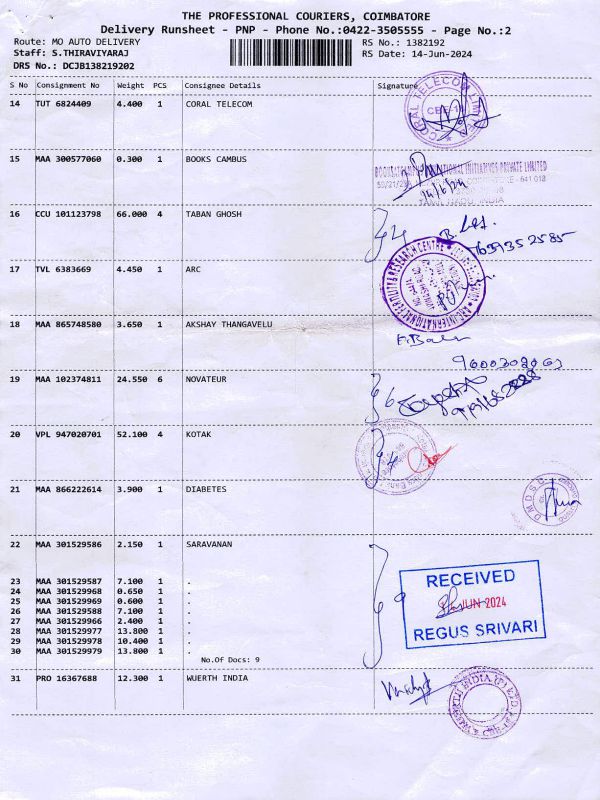 THE PROFESSIONAL COURIERS, COIMBATORE
Delivery Runsheet - PNP - Phone No.:0422-3505555 - Page No.:2
Route: MO AUTO DELIVERY RS No.: 1382192
Staff: S.THIRAVIYARAJ RS Date: 14-Jun-2024
DRS No.: DCJB138219202
S No Consignment No Weight PCS Consignee Details Signature
14 TUT 6824409 4.400 1 CORAL TELECOM
CORAL TELECOM LIMITED
15 MAA 300577060 0.300 1 BOOKS CAMBUS
INITIATIVES PRIVATE LIMITED
641 018
14/6/24
TAMIL NADU, INDIA
16 CCU 101123798 66.000 4 TABAN GHOSH
4
17 TVL 6383669 4.450 1 ARC
ARC INTERNATIONAL FERTILITY & RESEARCH CENTRE
18 MAA 865748580 3.650 1 AKSHAY THANGAVELU
19 MAA 102374811 24.550 6 NOVATEUR
6
20 VPL 947020701 52.100 4 KOTAK
4
21 MAA 866222614 3.900 1 DIABETES
D M D S C
22 MAA 301529586 2.150 1 SARAVANAN
23 MAA 301529587 7.100 1 .
24 MAA 301529968 0.650 1 .
25 MAA 301529969 0.600 1 .
26 MAA 301529588 7.100 1 .
27 MAA 301529966 2.400 1 .
28 MAA 301529977 13.800 1 .
29 MAA 301529978 10.400 1 .
30 MAA 301529979 13.800 1 .
No.Of Docs: 9
9
RECEIVED
JUN 2024
REGUS SRIVARI
31 PRO 16367688 12.300 1 WUERTH INDIA
WUERTH INDIA (P) LTD